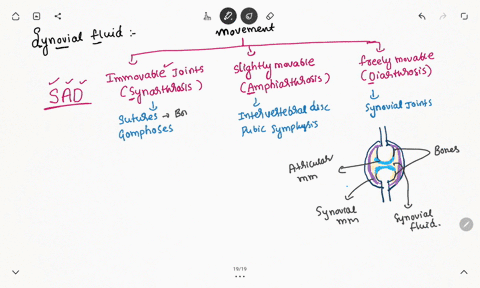 Synovial fluid :-
movement
Immovable Joints
(Synarthrosis)
Slightly movable
(Amphiarthrosis)
freely movable
(Diarthrosis)
SAD
Sutures → Bon
Gomphoses
Intervertebral disc
Pubic Symphysis
Synovial Joints
Atricular
mm
Bones
Synovial
mm
Synovial
fluid.
19/19